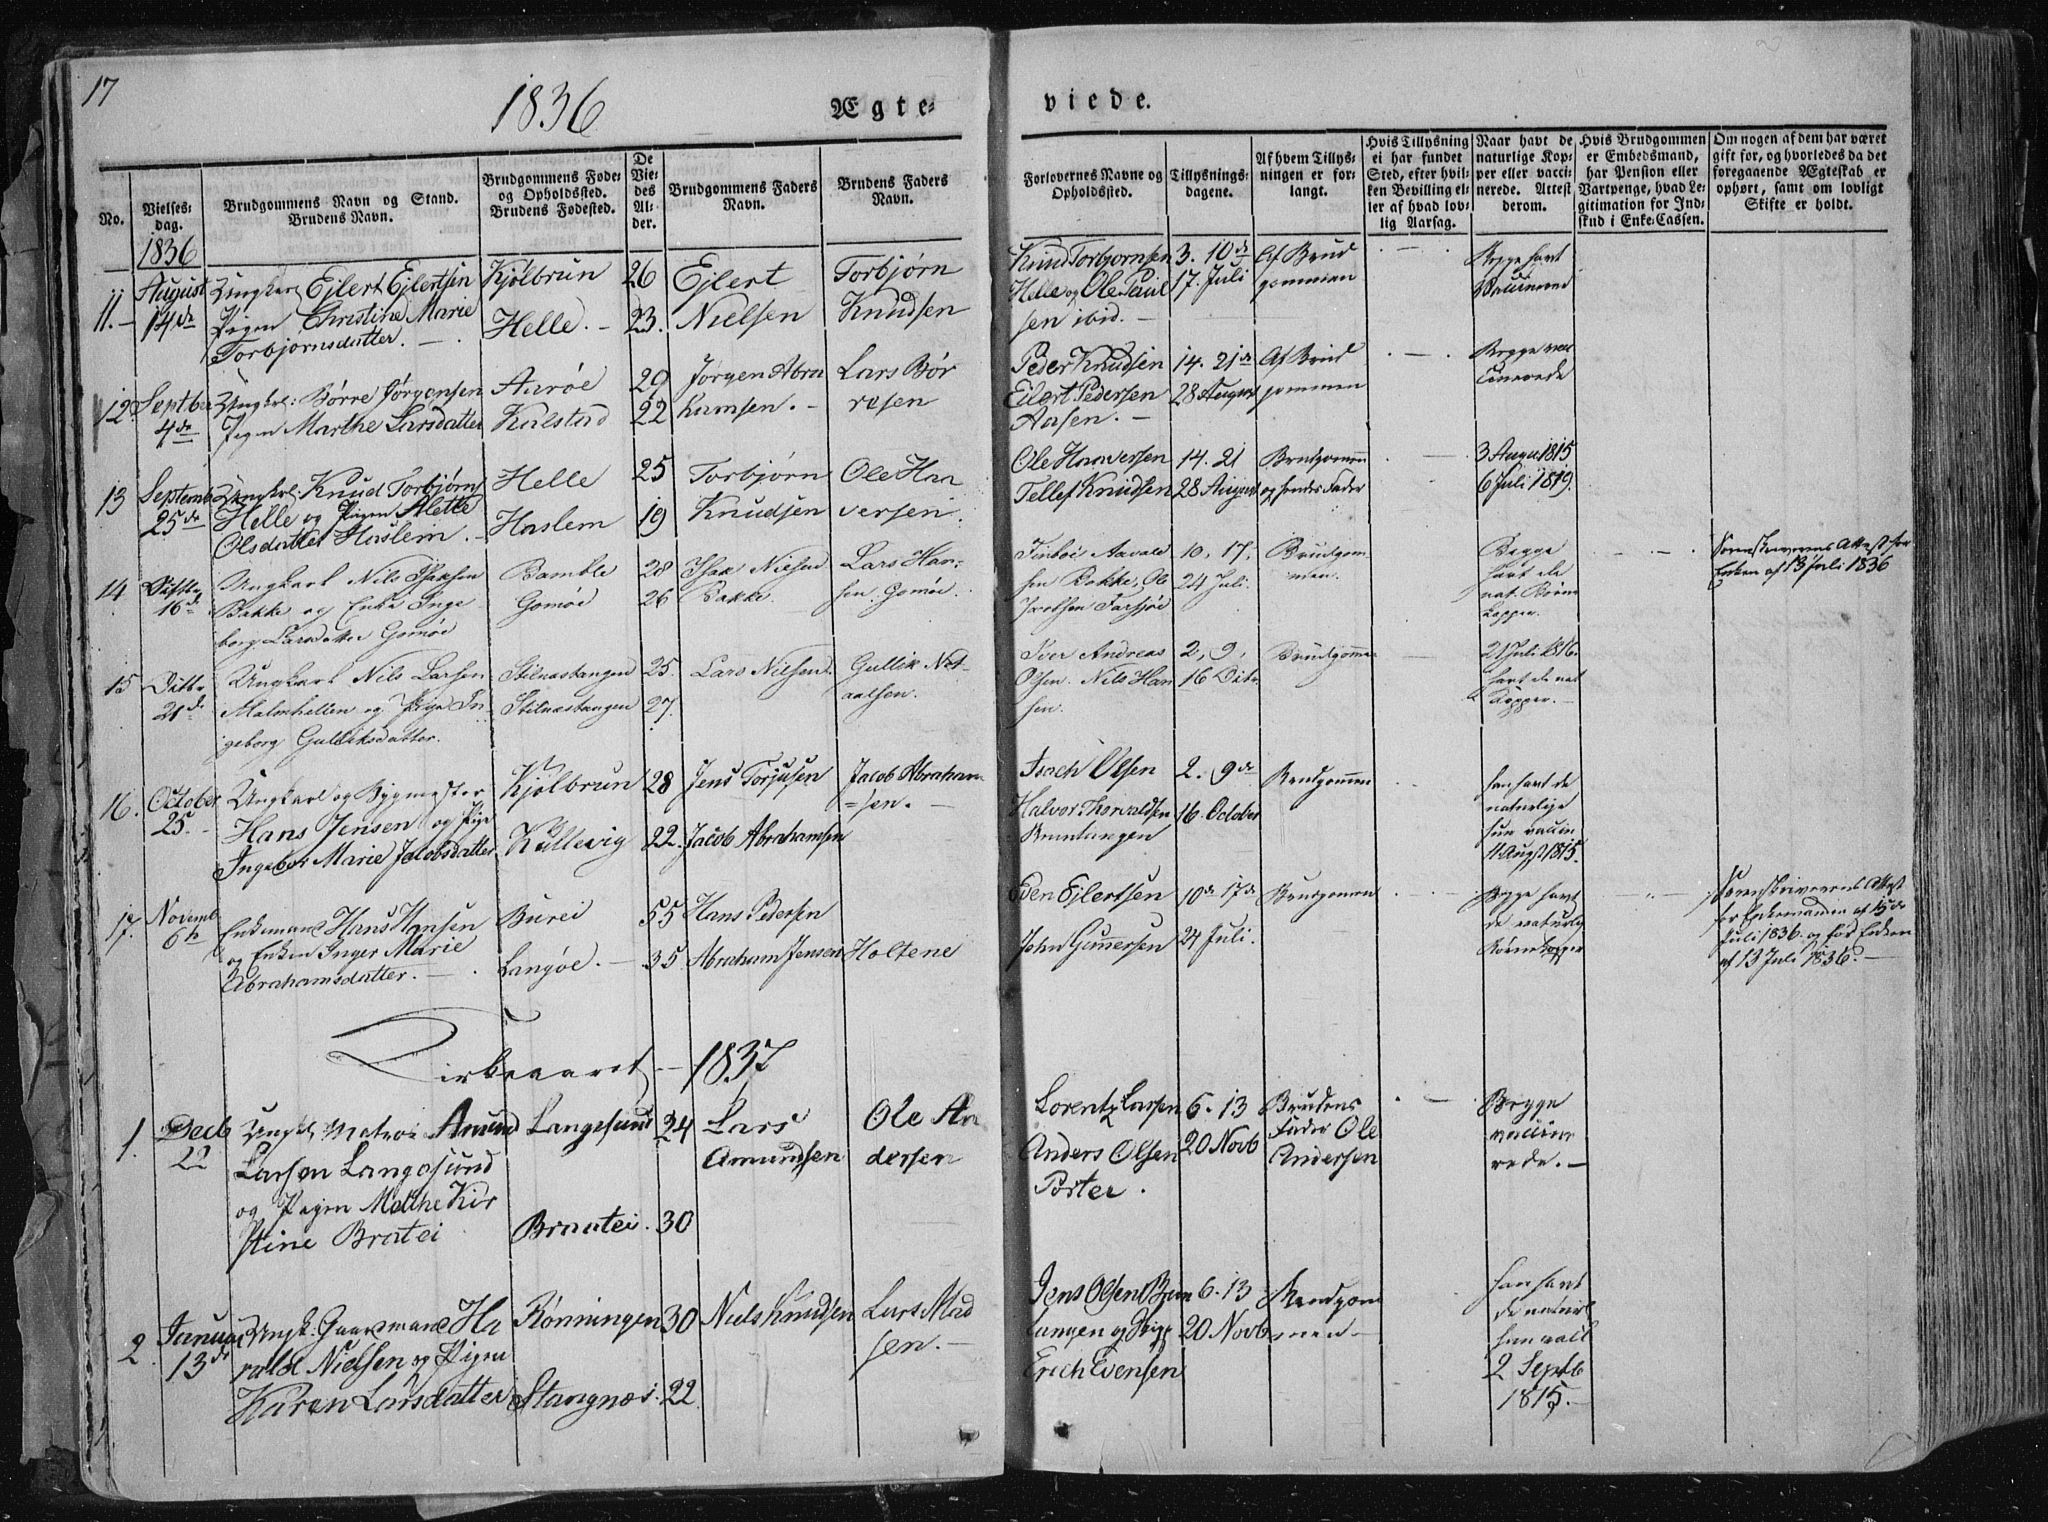 17
1836
Ægte-
viede.
No.
Vielses-
dag.
Brudgommens Navn og Stand.
Brudens Navn.
Brudgommens Føde- og
Opholdssted.
Brudens Fødested.
De
Vie-
des
Al-
der.
Brudgommens Faders
Navn.
Brudens Faders
Navn.
Forlovernes Navne og
Opholdssted.
Tillysnings-
dagene.
Af hvem Tillys-
ningen er for-
langt.
Hvis Tillysning
ei har fundet
Sted, efter hvil-
ken Bevilling el-
ler af hvad lov-
lig Aarsag.
Naar havt de
naturlige Kop-
per eller vacci-
nerede. Attest
derom.
Hvis Brudgommen
er Embedsmand,
har Pension eller
Vartpenge, hvad Le-
gitimation for Ind-
skud i Enke-Cassen.
Om nogen af dem har været
gift før, og hvorledes da det
foregaaende Ægteskab er
ophørt, samt om lovligt
Skifte er holdt.
1836
11.-
August
14de
Ungkarl Ejlert Ejlertsen
Pigen Christine Marie
Torbjørnsdatter.
Kjølbrun
Helle.-
26
23.
Ejlert
Nielsen
Torbjørn
Knudsen
Knud Torbjørnsen
Helle og Ole Paul
sen ibid.-
3. 10de
17. Juli
Af Brud
gommen
Begge havt
Vaccinered
12.
Septbr
4de
Ungkl: Børre Jørgensen
Pigen Marthe Larsdatter
Aarøe
Kalstad
29
22
Jørgen Abra
hamsen.-
Lars Bør
resen
Peder Knudsen
Eilert Pedersen
Aasen.-
14. 21de
28 August
Af Brud
gommen
Begge vac
cinerede
13
Septemb
25de
Ungkl: Knud Torbjørn
Helle og Pigen Alette
Olsdatter Haslem.-
Helle
Haslem
25
19
Torbjørn
Knudsen
Ole Haa
versen.
Ole Haaversen
Tellef Knudsen
14. 21
28 August
Brudgommen
og hendes Fader
3 Augu 1815
6 Juli 1819.
14
16de
Ungkarl Nils Isaksen
Bakke og Enke Inge-
borg Larsdatter Gomøe
Bamble
Gomøe
28
26
Isak Nielsen
Bakke
Lars Han-
sen. Gomøe.
Aavald
sen Bakke, Ole
10, 17,
24 Juli.
Brudgom-
men.
Begge
havt de
nat. Børne
kopper.
Sorenskriverens Attest for
Enken af 13 Juli 1836
15
Octbr
21de
Ungkarl Nils Larsen
Malmhellen og Pige In-
geborg Gulliksdatter.
Stilnæstangen
Stilnæstangen
25.
27.
Lars Nielsen.
Gullik Net-
aalsen.
Iver Andreas
Olsen. Nils Han
sen.
2, 9,
16 Octbr.
Brudgomme
21 Juli 1816.
havt de nat
Kopper.-
16.
October
25.
Ungkarl og Bygmester
Hans Jensen og Pige
Ingebor Marie Jacobsdatter
Kjølbrun
Kullevig
28
22.
Jens Torjusen
Jacob Abrahamsen
Jacob Abraham
=sen.-
Isach Olsen
Halvor Thorvaldsen
2. 9de
16 October
Brudgommen
han havt de
naturlige
hun vaccin
11 Augst 1815.
17.
Novemb
6te
Enkemand Hans Hansen
og Enken Inger Marie
Abrahamsdatter.-
Burei
Langøe.-
55
35
Hans Pedersen
Abraham Jensen
Holtene
Even Ejlertsen
John Gunnersen
10de 17de
24 Juli.
Brudgommen
Begge havt
de naturlig
Børnekopper
Sorenskriverens Attest
for Enkemanden af 15de
Juli 1836. og for Enken
af 13 Juli 1836.-
Kirkeaaret - 1837
1.
Decb
22
Ungkl. Matros Amund
Larsen Langesund
og Pigen Mathe Kir
stine Bratei
Langesund
Braatei.
24
30
Lars
Amundsen
Ole An
dersen
Lorentz Larsen
Anders Olsen
Porter.
6. 13
20 Novb
Brudens
Fader Ole
Andersen
Begge
vaccine
rede.-
2.
Januar
13de
Ungk: Gaarmand Ha
rald Nielsen og Pigen
Karen Larsdatter
Rønningen
Stangnæs.
30
22
Niels Knudsen
Lars Mad
sen.-
Jens Olsen Brun
tangen og
Erich Evensen
6. 13
20 Novb
Brudgom
men-
han havt
de naturl
hun vacc
2 Septb
1815.-